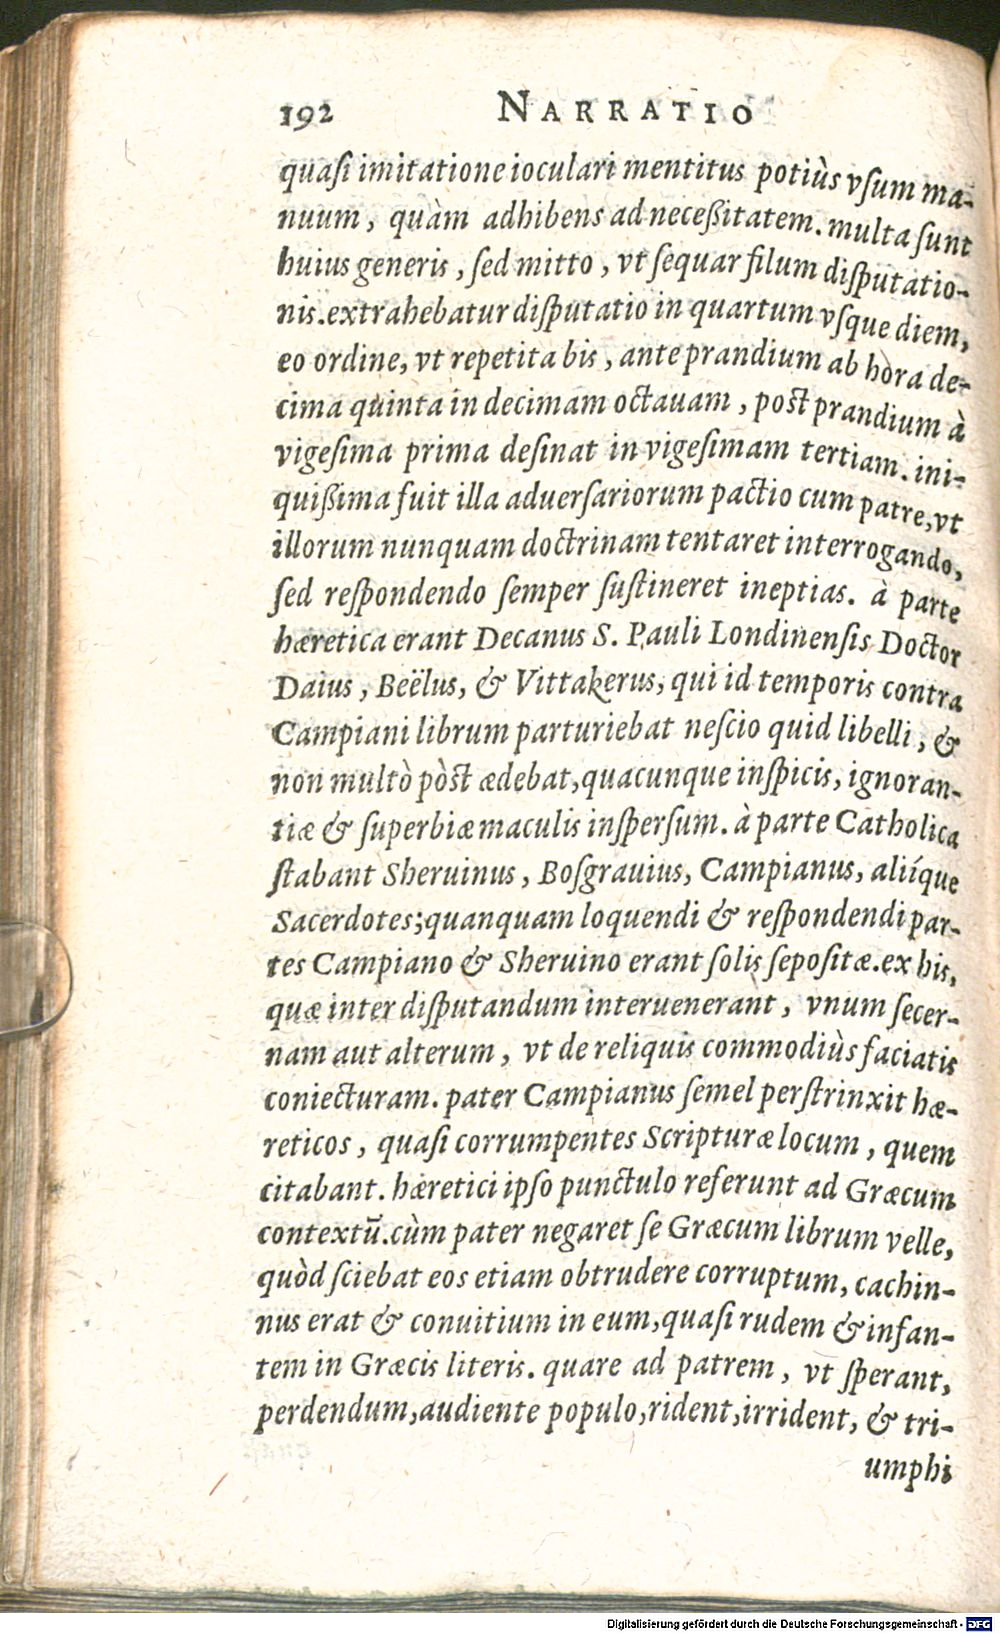 192 NARRATIO
quaſi imitatione ioculari mentitus potiùs vſum ma-
nuum, quàm adhibens ad neceßitatem. multa ſunt
huius generis, ſed mitto, vt ſequar filum diſputatio-
nis. extrahebatur diſputatio in quartum vſque diem,
eo ordine, vt repetita bis, ante prandium ab hora de-
cima quinta in decimam octauam, poſt prandium à
vigeſima prima deſinat in vigeſimam tertiam. ini-
quißima fuit illa aduerſariorum pactio cum patre, vt
illorum nunquam doctrinam tentaret interrogando,
ſed reſpondendo ſemper ſuſtineret ineptias. à parte
hæretica erant Decanus S. Pauli Londinenſis Doctor
Daius, Beëlus, & Vittakerus, qui id temporis contra
Campiani librum parturiebat neſcio quid libelli, &
non multò pòſt ædebat, quacunque inſpicis, ignoran-
tiæ & ſuperbiæ maculis inſperſum. à parte Catholica
ſtabant Sheruinus, Boſgrauius, Campianus, aliíque
Sacerdotes; quanquam loquendi & reſpondendi par-
tes Campiano & Sheruino erant ſolis ſepoſitæ. ex his,
quæ inter diſputandum interuenerant, vnum ſecer-
nam aut alterum, vt de reliquis commodiùs faciatis
coniecturam. pater Campianus ſemel perſtrinxit hæ-
reticos, quaſi corrumpentes Scripturæ locum, quem
citabant. hæretici ipſo punctulo referunt ad Græcum
contextū. cùm pater negaret ſe Græcum librum velle,
quòd ſciebat eos etiam obtrudere corruptum, cachin-
nus erat & conuitium in eum, quaſi rudem & infan-
tem in Græcis literis. quare ad patrem, vt ſperant,
perdendum, audiente populo, rident, irrident, & tri-
umphi
Digitalisierung gefördert durch die Deutsche Forschungsgemeinschaft - DFG